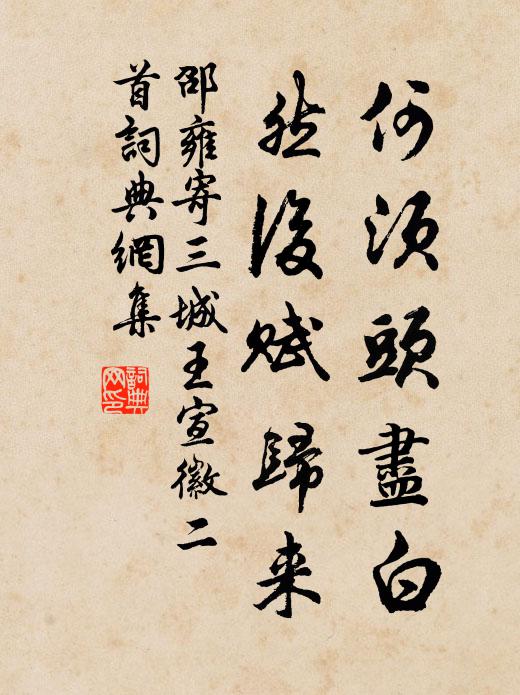 何須頭盡白
然後賦歸来
邵雍寄三城王宣徽二
首詞典網集
詞典网印